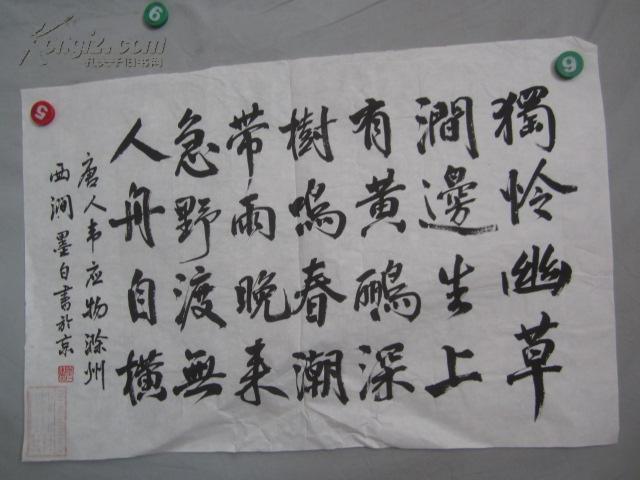 獨怜幽草
澗邊生上
有黄鸝深
樹鳴春潮
带雨晚来
急野渡無
人舟自横
唐人韦应物滁州
西涧墨白書於京
Kongfz.com
孔夫子旧书网
6
9
5